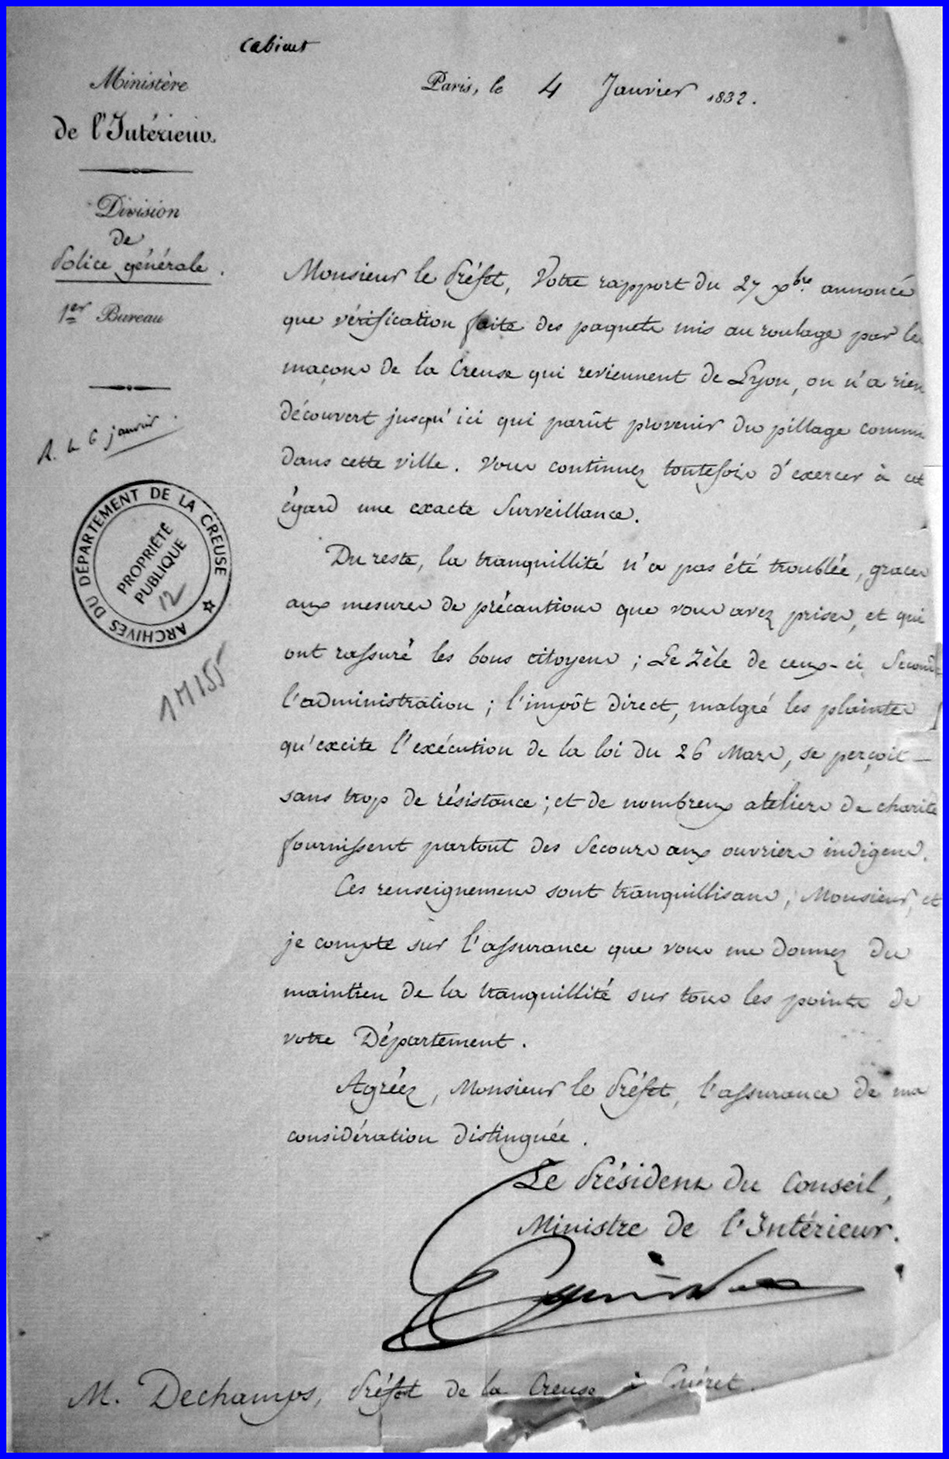 Cabinet
Ministère
de l'Intérieur.
Paris, le 4 Janvier 1832.
Division
de
Police générale.
1er Bureau
R. le 6 janvier
ARCHIVES DU DÉPARTEMENT DE LA CREUSE
PROPRIÉTÉ
PUBLIQUE
12
1M155
Monsieur le Préfet, Votre rapport du 27 Xbre annonce
que vérification faite des paquets mis au roulage par les
maçons de la Creuse qui reviennent de Lyon, on n'a rien
découvert jusqu'ici qui parût provenir du pillage commis
dans cette ville. Vous continuez toutefois d'exercer à cet
égard une exacte Surveillance.
Du reste, la tranquillité n'a pas été troublée, graces
aux mesures de précautions que vous avez prises, et qui
ont rassuré les bons citoyens ; Le Zèle de ceux-ci Seconde
l'administration ; l'impôt direct, malgré les plaintes
qu'excite l'exécution de la loi du 26 Mars, se perçoit
sans trop de résistance ; et de nombreux ateliers de charité
fournissent partout des Secours aux ouvriers indigens.
Ces renseignemens sont tranquillisans, Monsieur, et
je compte sur l'assurance que vous me donnez du
maintien de la tranquillité sur tous les points de
votre Département.
Agréez, Monsieur le Préfet, l'assurance de ma
considération distinguée.
Le Président du Conseil,
Ministre de l'Intérieur.
M. Dechamps, Préfet de la Creuse à Guéret.